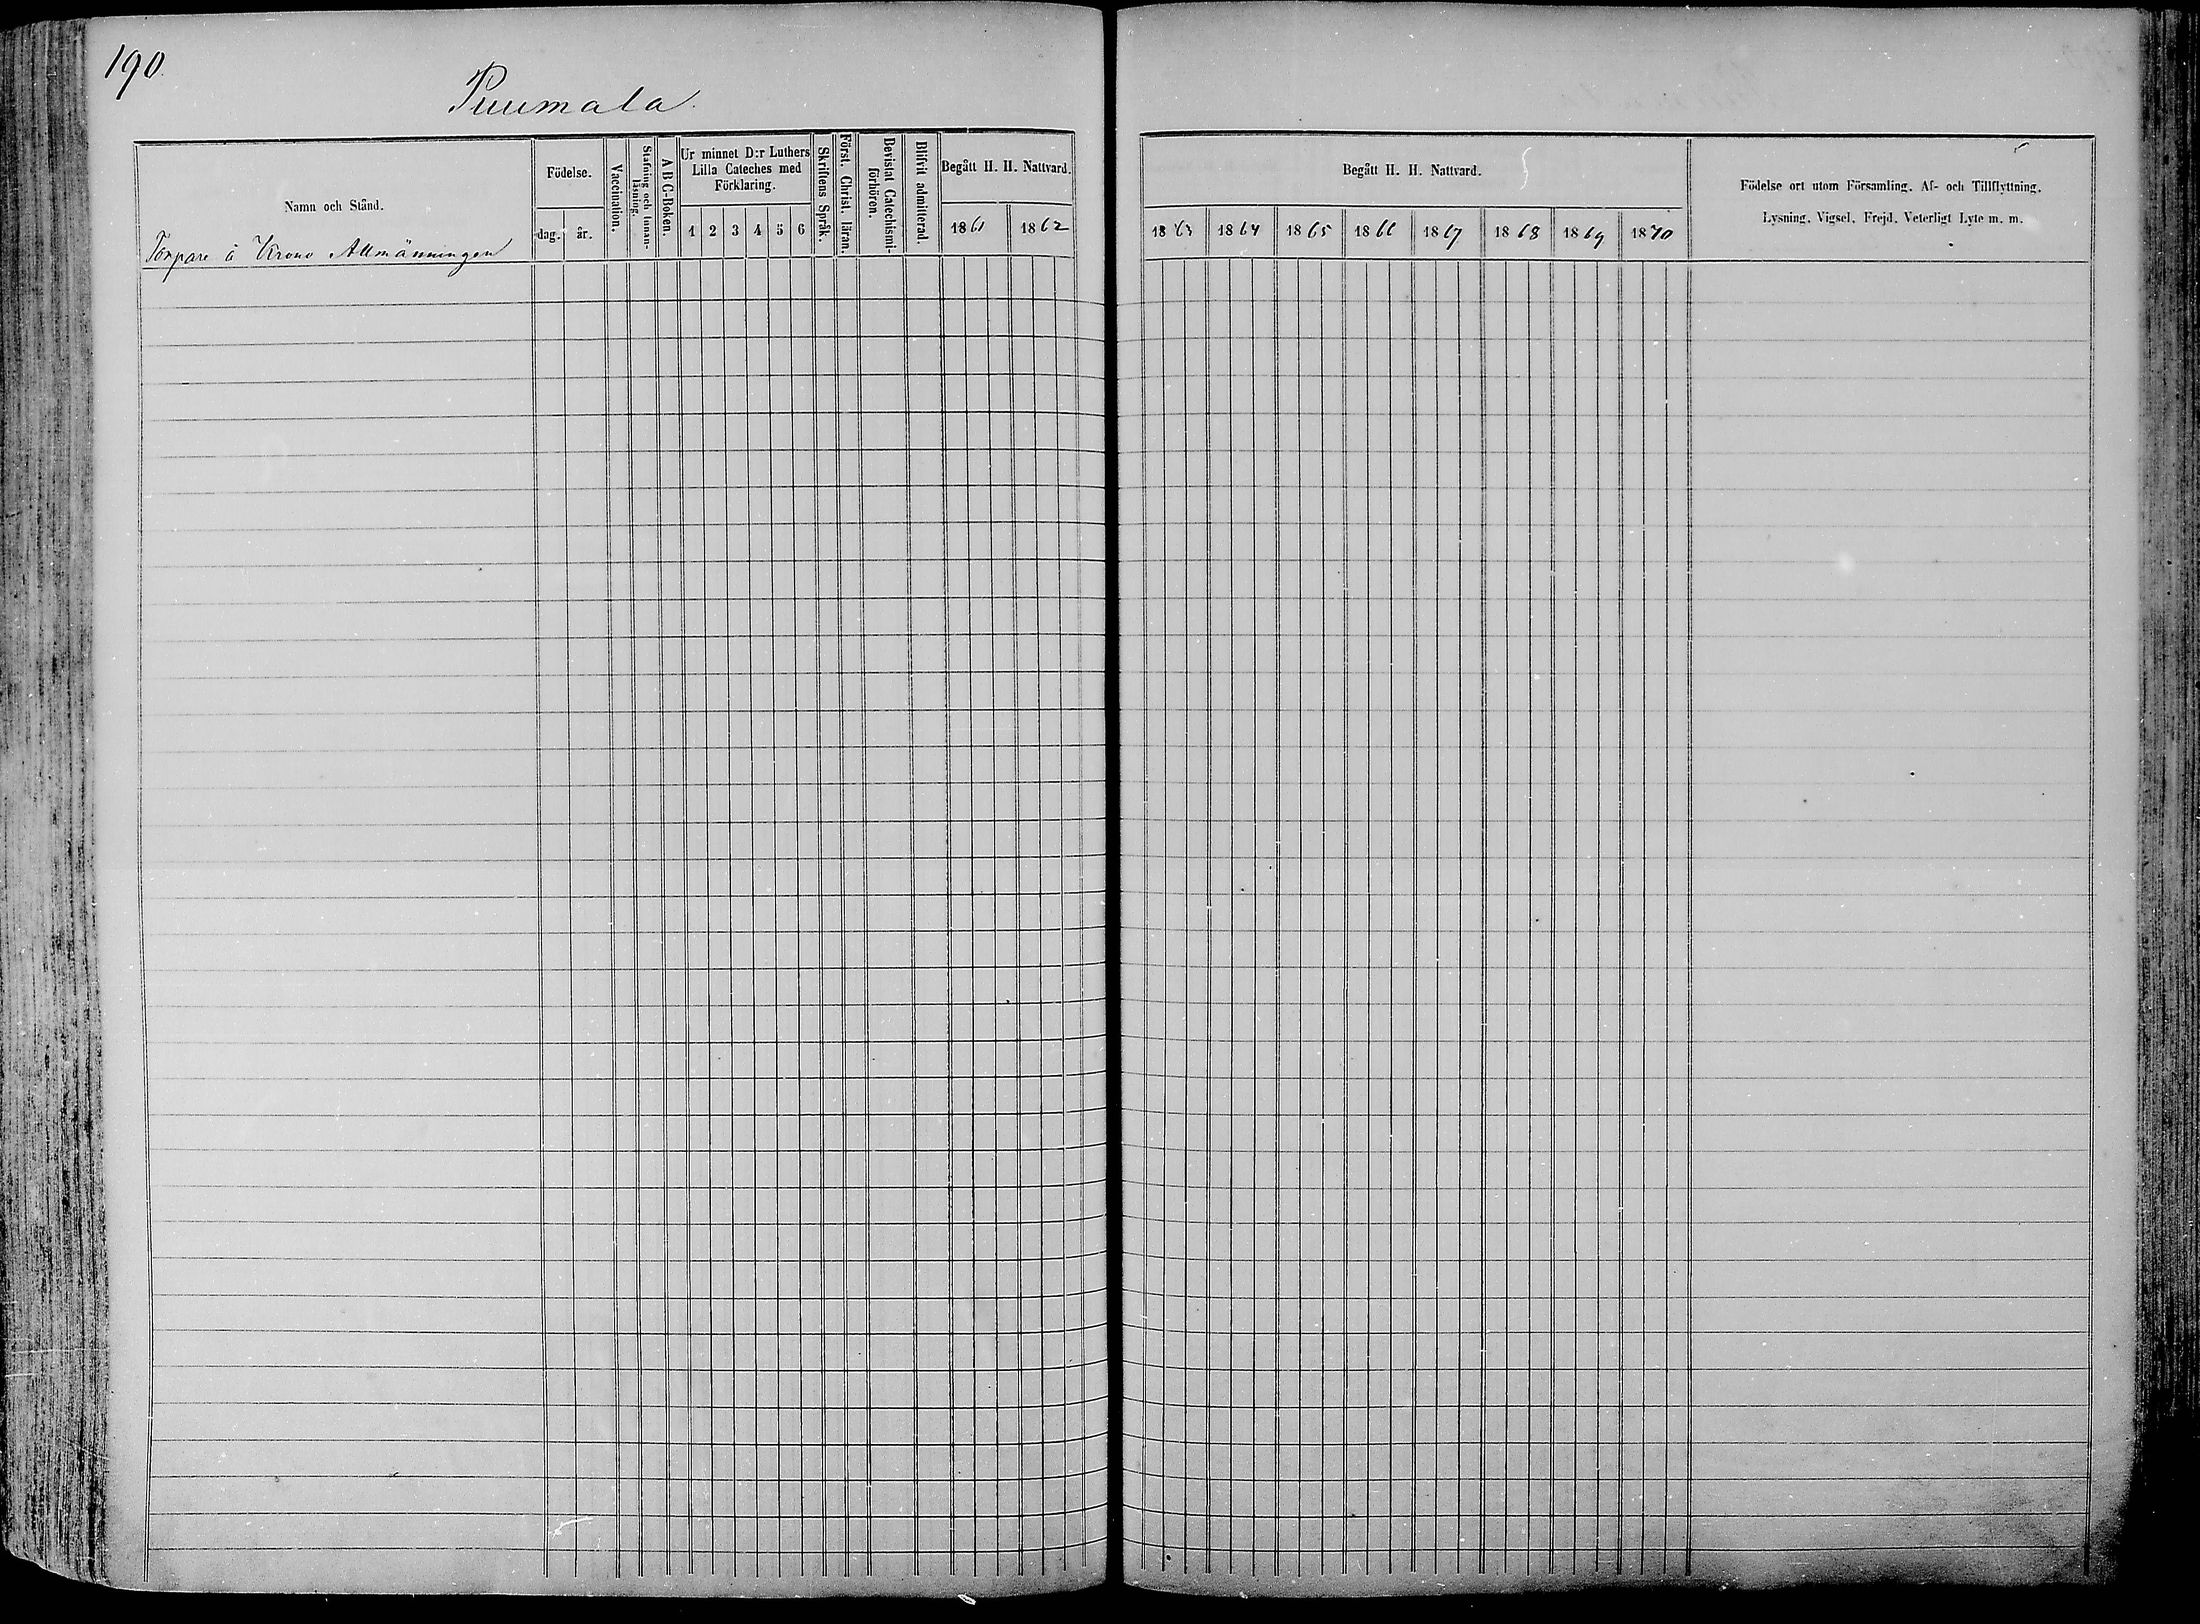 190.
Puumala.
Namn och Stånd.
Födelse.
dag.
år.
Vaccination.
Stafning och Innan-
läsning.
A B C-Boken.
Ur minnet D:r Luthers
Lilla Cateches med
Förklaring.
1 2 3 4 5 6
Skriftens Språk.
Först. Christ. läran.
Bevistat Catechismi-
förhören.
Blifvit admitterad.
Begått H. H. Nattvard.
1861 1862
Torpare å Krono Allmänningen
Begått H. H. Nattvard.
1863 1864 1865 1866 1867 1868 1869 1870
Födelse ort utom Församling. Af- och Tillflyttning.
Lysning. Vigsel. Frejd. Veterligt Lyte m. m.